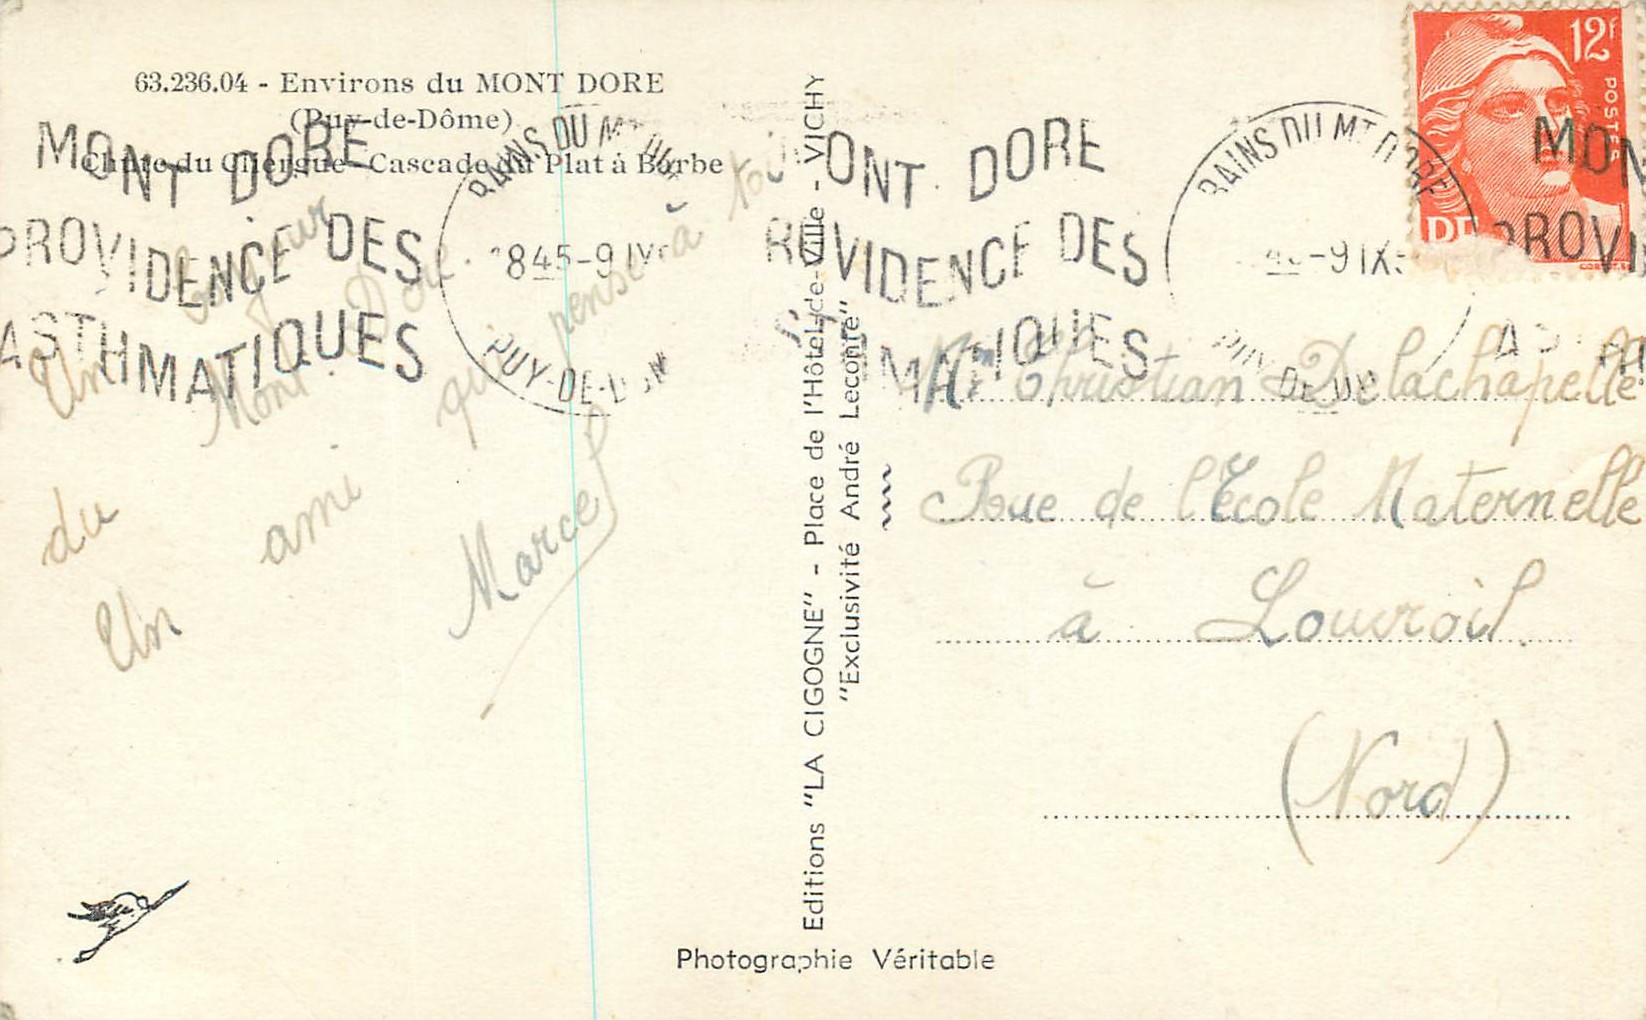 63.236.04 - Environs du MONT DORE
(Puy-de-Dôme)
Chute du Guergue - Cascade du Plat à Barbe
MONT DORE
PROVIDENCE DES
ASTHMATIQUES
BAINS DU MT DORE
1845-9 IX
PUY-DE-DOM
MONT DORE
PROVIDENCE DES
MATIQUES
BAINS DU MT DORE
45-9 IX
PUY DE
12f
POSTES
RF
MON
PROVI
Un bonjour
du Mont Dore.
Un ami qui pense à toi
Marcel
Editions "LA CIGOGNE" - Place de l'Hôtel-de-Ville - VICHY
"Exclusivité André Leconte"
Mr Christian Delachapelle
Rue de l'Ecole Maternelle
à Louvroil.
(Nord)
Photographie Véritable